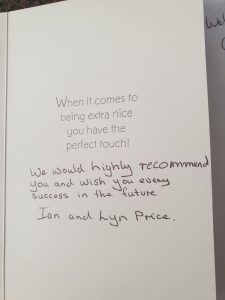 When it comes to
being extra nice
you have the
perfect touch!
We would highly recommend
you and wish you every
success in the future
Ian and Lyn Price.